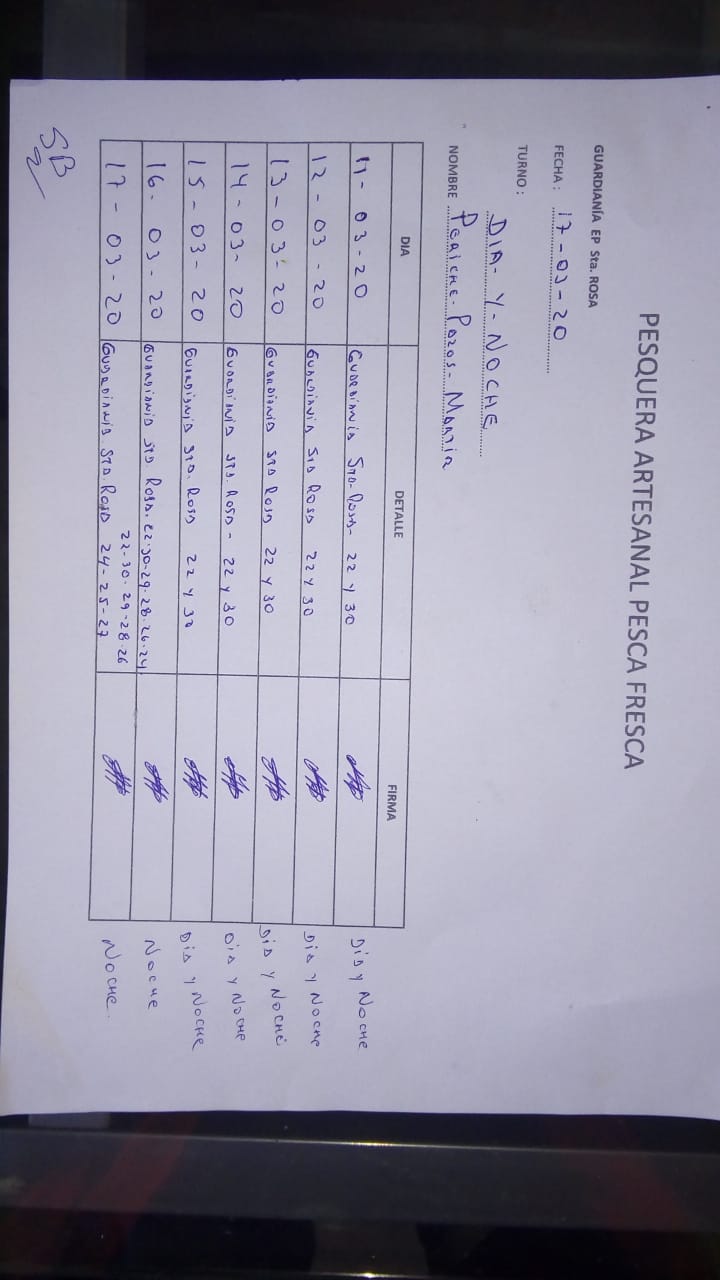 PESQUERA ARTESANAL PESCA FRESCA
GUARDIANÍA EP Sta. ROSA
FECHA: 17-03-20
TURNO: DIA-Y-NOCHE
NOMBRE Peniche-Pozos-Martin
DIA DETALLE FIRMA
11-03-20 Guardiania Sta-Rosa- 22 y 30 Dia y Noche
12-03-20 Guardiania Sta Rosa 22 y 30 Dia y Noche
13-03-20 Guardiania Sta Rosa 22 y 30 Dia y Noche
14-03-20 Guardiania Sta. Rosa - 22 y 30 Dia y Noche
15-03-20 Guardiania Sta. Rosa 22 y 30 Dia y Noche
16-03-20 Guardiania Sta Rosa. 22-30-29-28-26-24. Noche
22-30-29-28-26
17-03-20 Guardiania Sta. Rosa 24-25-27 Noche.
SB